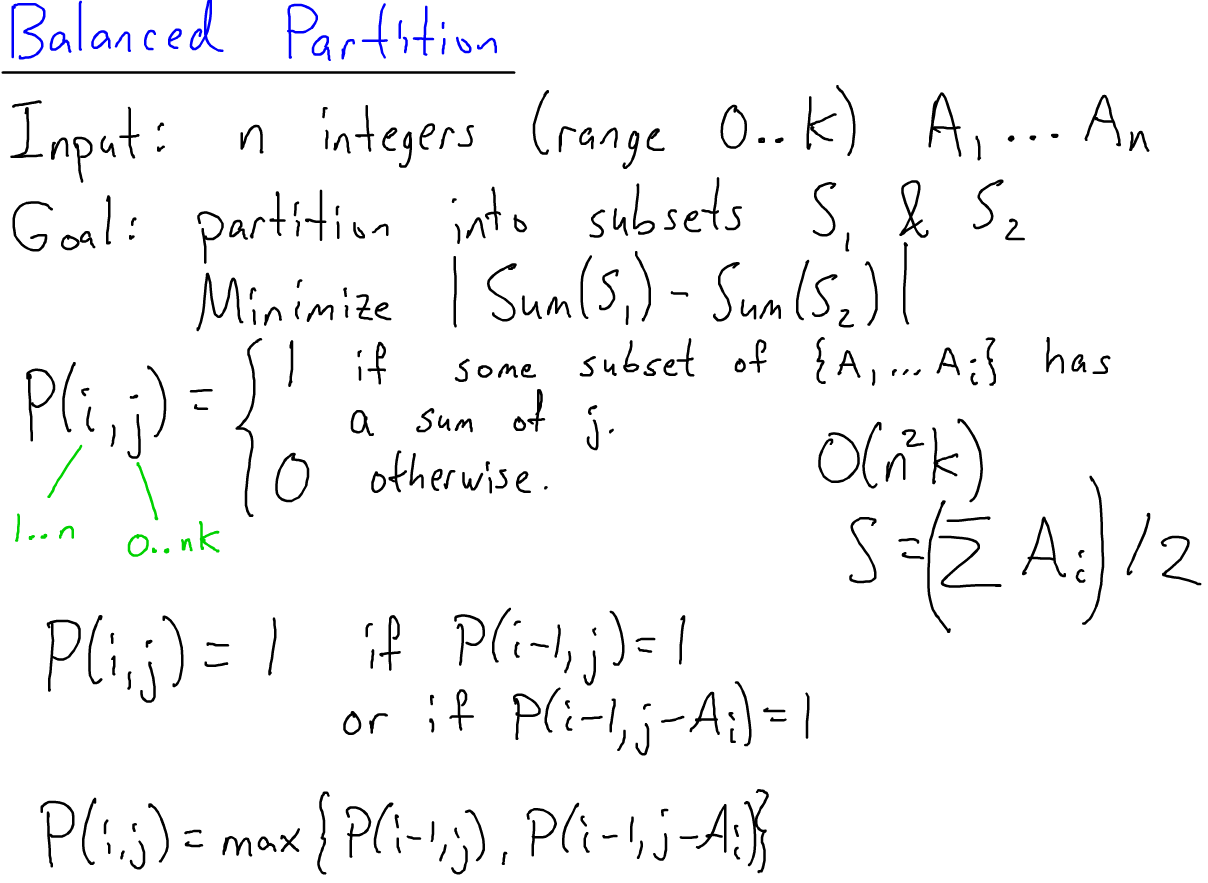 Balanced Partition
Input: n integers (range 0..k) A₁ ... Aₙ
Goal: partition into subsets S₁ & S₂
Minimize | Sum(S₁) - Sum(S₂) |
P(i,j) = { 1 if some subset of {A₁ ... Aᵢ} has
a sum of j.
0 otherwise.
O(n²k)
1..n 0..nk
S = (Σ Aᵢ) / 2
P(i,j) = 1 if P(i-1,j) = 1
or if P(i-1,j-Aᵢ) = 1
P(i,j) = max { P(i-1,j), P(i-1,j-Aᵢ)}